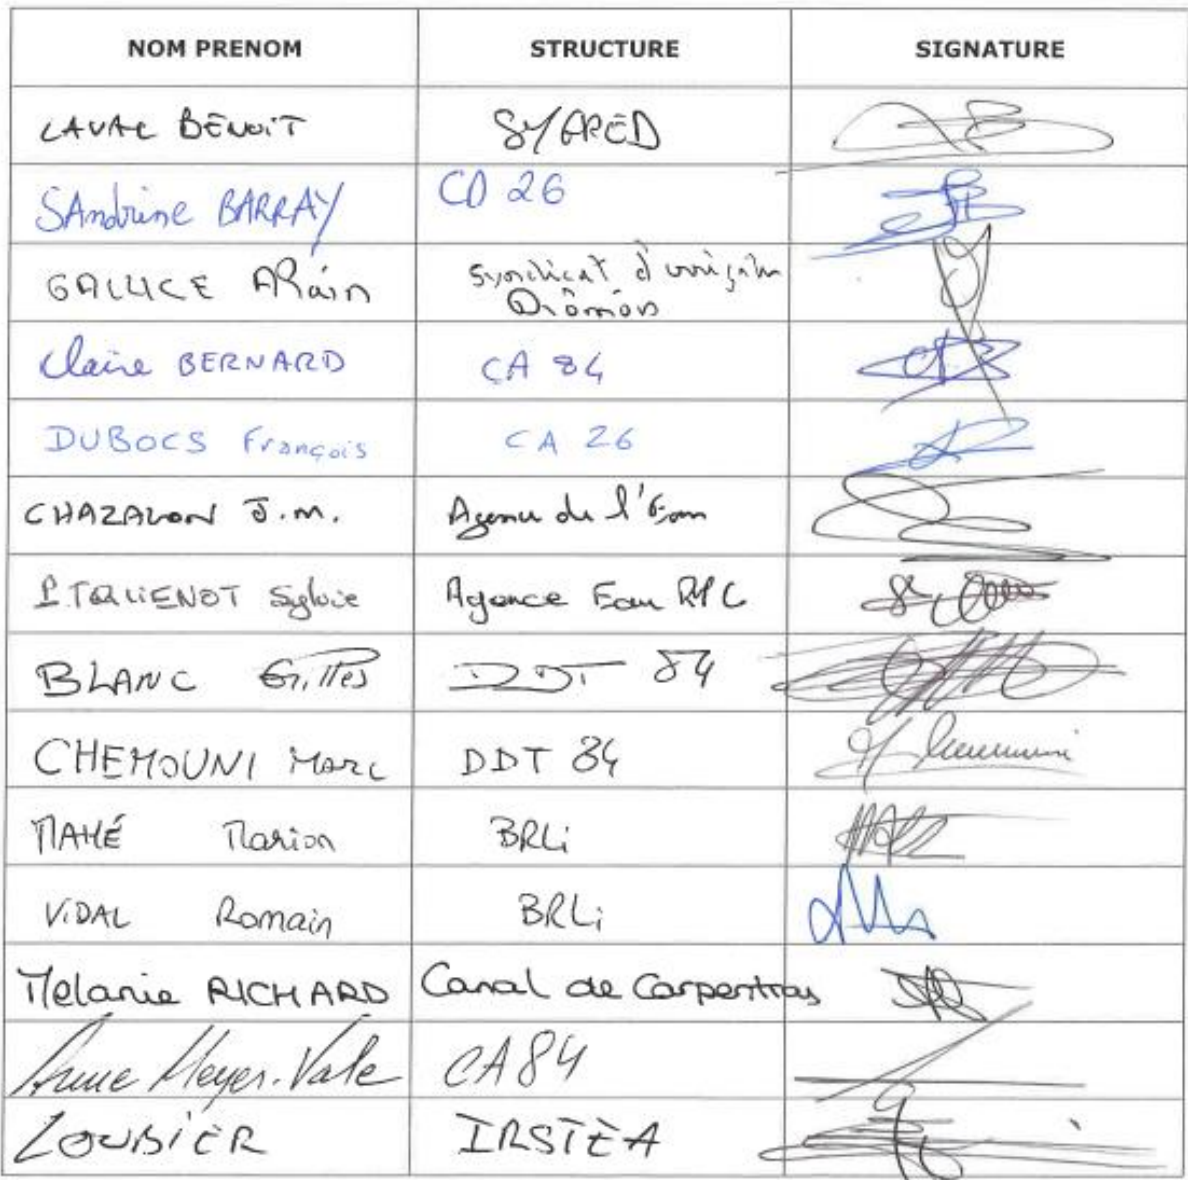 NOM PRENOM STRUCTURE SIGNATURE
LAVAL BENOIT SYGRED
SAndrine BARRAY CD 26
GALLICE Alain Syndicat d'irrigation
Drômois
Claire BERNARD CA 84
DUBOCS François CA 26
CHAZALON J.M. Agence de l'Eau
Sylvie Agence Eau RMC
BLANC Gilles DDT 84
CHEMOUNI Marc DDT 84
MAHÉ Marion BRLi
ViDAL Romain BRLi
Melanie RICHARD Canal de Carpentras
Anne Meyer-Vale CA84
LOUBIER IRSTEA